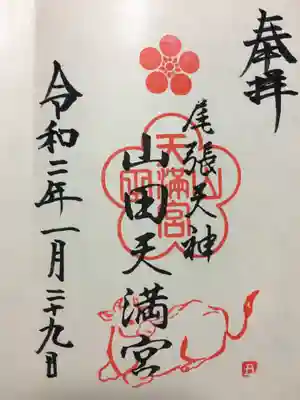 奉拝
尾張天神
山田天満宮
令和二年一月二十九日
天満宮